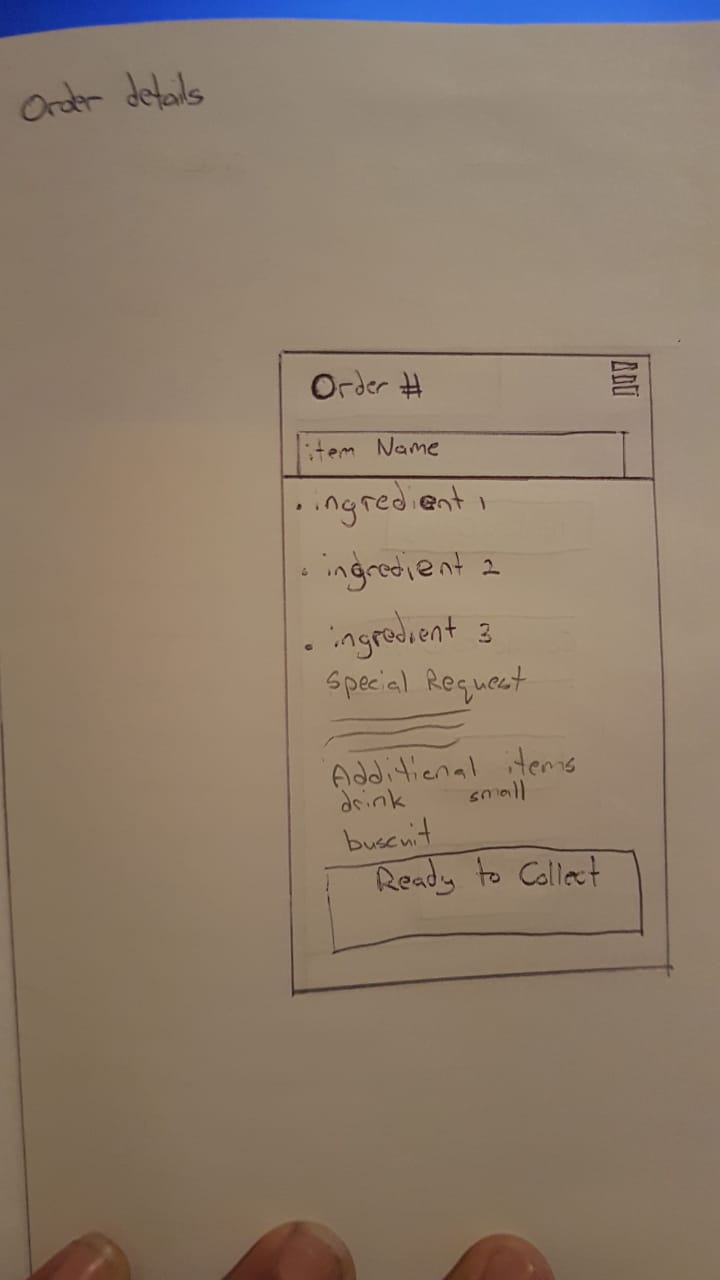 Order details
Order #
item Name
• ingredient 1
• ingredient 2
• ingredient 3
Special Request
Additional items
drink small
buscuit
Ready to Collect